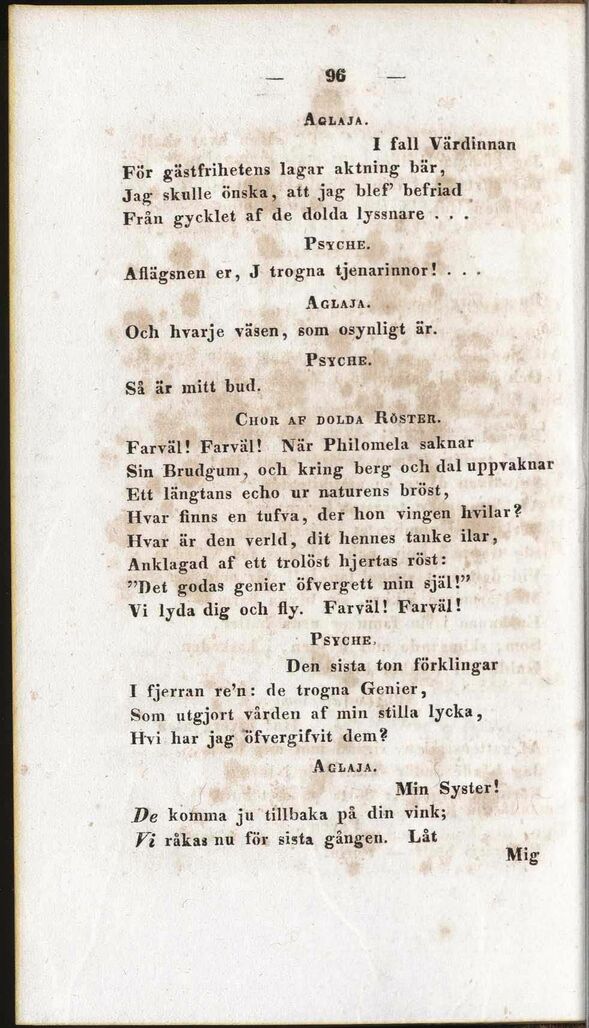 — 96 —
AGLAJA.
I fall Värdinnan
För gästfrihetens lagar aktning bär,
Jag skulle önska, att jag blef' befriad
Från gycklet af de dolda lyssnare . . .
PSYCHE.
Aflägsnen er, J trogna tjenarinnor! . . .
AGLAJA.
Och hvarje väsen, som osynligt är.
PSYCHE.
Så är mitt bud.
CHOR AF DOLDA RÖSTER.
Farväl! Farväl! När Philomela saknar
Sin Brudgum, och kring berg och dal uppvaknar
Ett längtans echo ur naturens bröst,
Hvar finns en tufva, der hon vingen hvilar?
Hvar är den verld, dit hennes tanke ilar,
Anklagad af ett trolöst hjertas röst:
”Det godas genier öfvergett min själ!”
Vi lyda dig och fly. Farväl! Farväl!
PSYCHE.
Den sista ton förklingar
I fjerran re'n: de trogna Genier,
Som utgjort vården af min stilla lycka,
Hvi har jag öfvergifvit dem?
AGLAJA.
Min Syster!
De komma ju tillbaka på din vink;
Vi råkas nu för sista gången. Låt
Mig